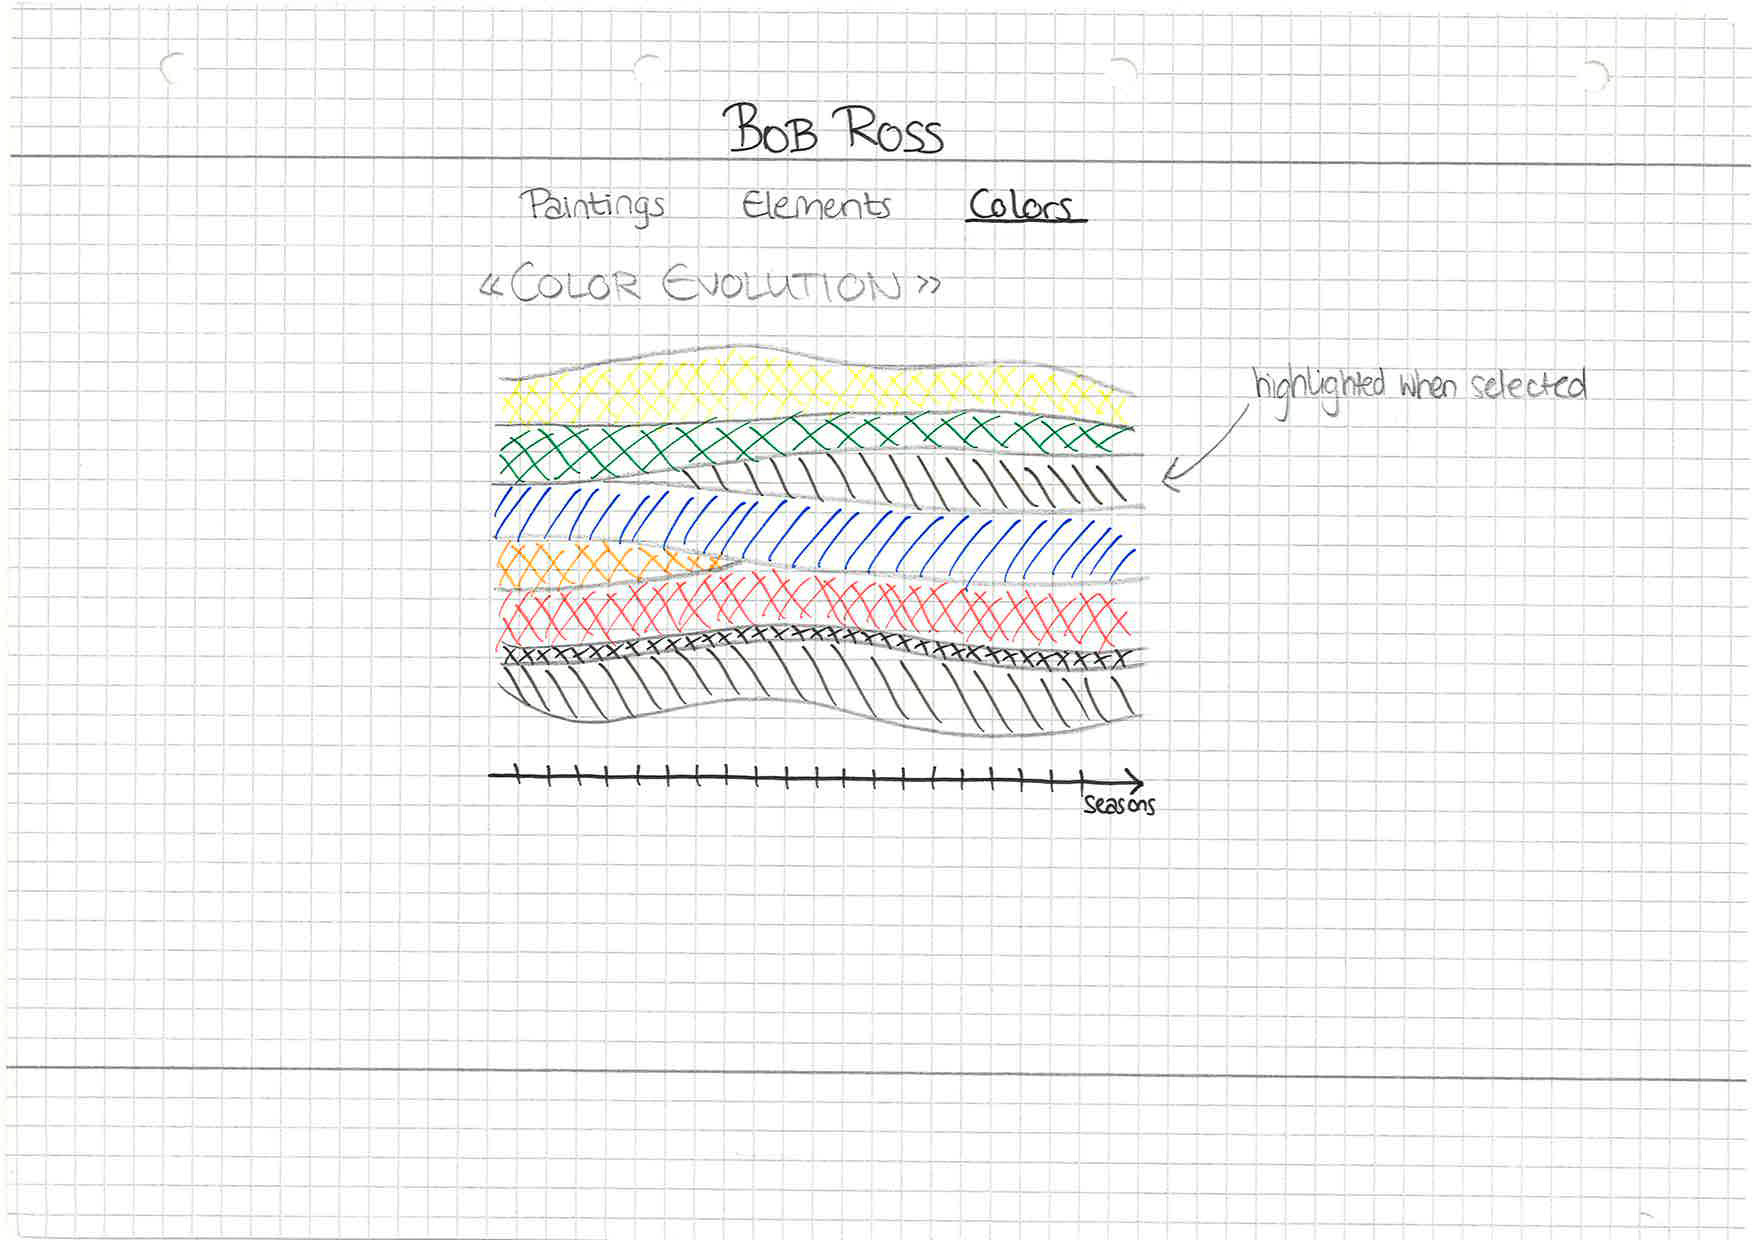 BOB ROSS
Paintings Elements Colors
« COLOR EVOLUTION »
highlighted when selected
seasons